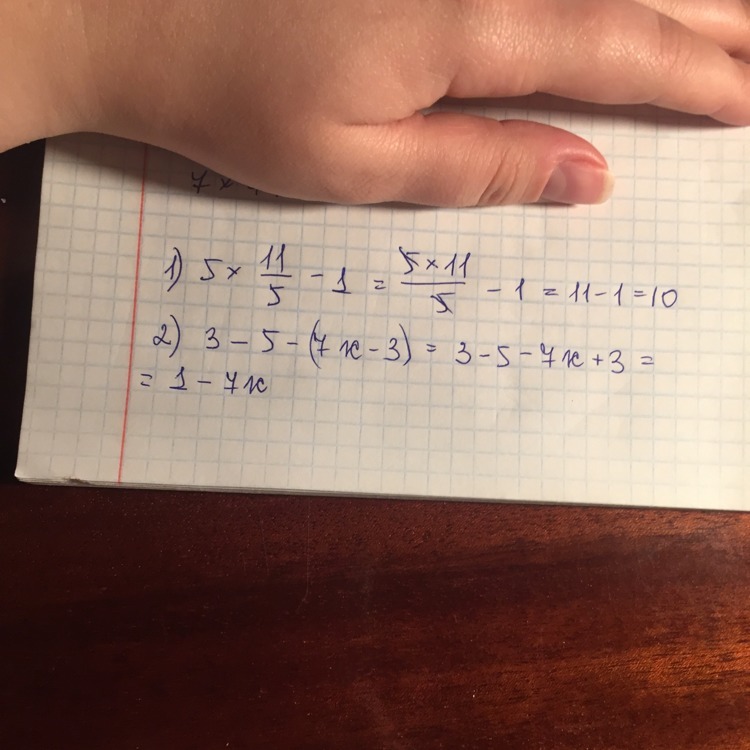 7 ×
1) 5 × 11/5 - 1 = 5 × 11/5 - 1 = 11 - 1 = 10
2) 3 - 5 - (7x - 3) = 3 - 5 - 7x + 3 =
= 1 - 7x